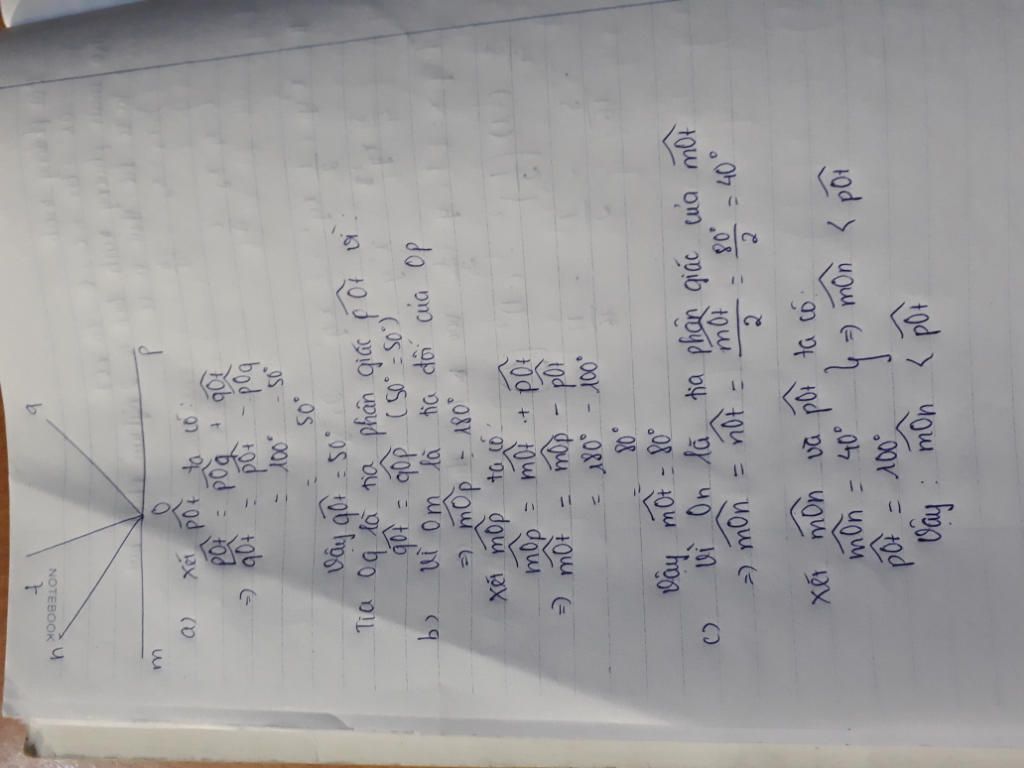 NOTEBOOK
t
q
m
O
p
a) Xét p̂Ot ta có:
p̂Ot = p̂Oq + q̂Ot
=) q̂Ot = p̂Ot - p̂Oq
= 100° - 50°
= 50°
Vậy q̂Ot = 50°
Tia Oq là tia phân giác p̂Ot vì:
q̂Ot = q̂Op (50° = 50°)
b) Vì Om là tia đối của Op
=) m̂Op = 180°
Xét m̂Op ta có:
m̂Op = m̂Ot + p̂Ot
=) m̂Ot = m̂Op - p̂Ot
= 180° - 100°
= 80°
Vậy m̂Ot = 80°
c) Vì On là tia phân giác của m̂Ot
=) m̂On = n̂Ot = m̂Ot/2 = 80°/2 = 40°
Xét m̂On và p̂Ot ta có:
m̂On = 40°
p̂Ot = 100° } => m̂On < p̂Ot
Vậy: m̂On < p̂Ot